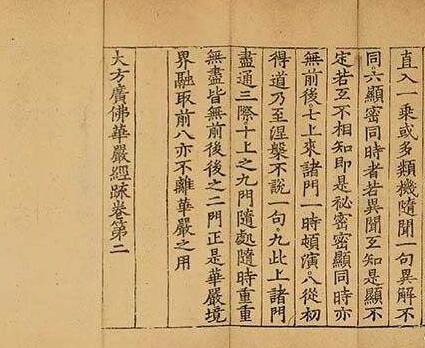 直入一乗或多類機隨聞一句異解不
同六顯密同時者若異聞互知是顯不
定若互不相知即是祕密密顯同時亦
無前後七上來諸門一時頓演八從初
得道乃至涅槃不說一句九此上諸門
盡通三際十上之九門隨處隨時重重
無盡皆無前後後之二門正是華嚴境
界融取前八亦不離華嚴之用
大方廣佛華嚴經疏卷第二